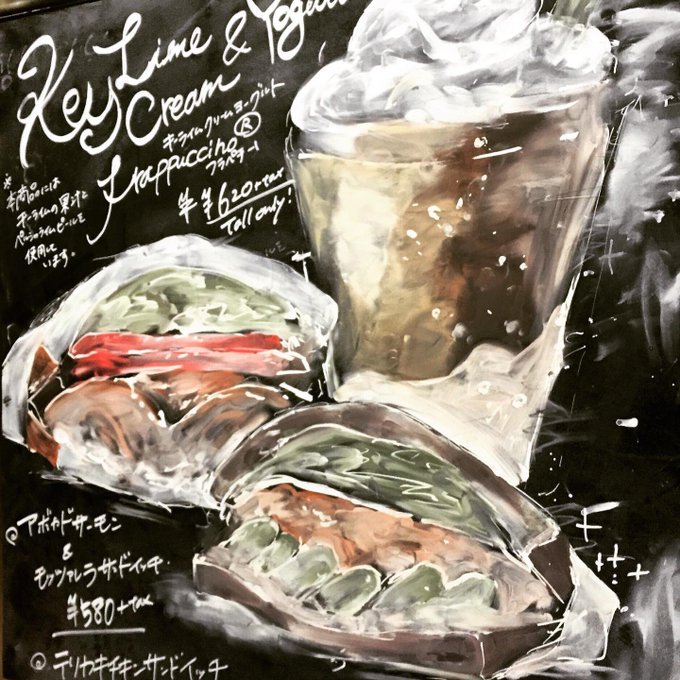 Key Lime
Cream & Yogurt
キーライムクリームヨーグルト
Frappuccino®
フラペチーノ
¥620+tax
Tall only!
※
本商品には
キーライムの果汁と
ペルシャライムピールを
使用して
います。
アボカドサーモン
&
モッツァレラサンドイッチ
¥580+tax
テリヤキチキンサンドイッチ